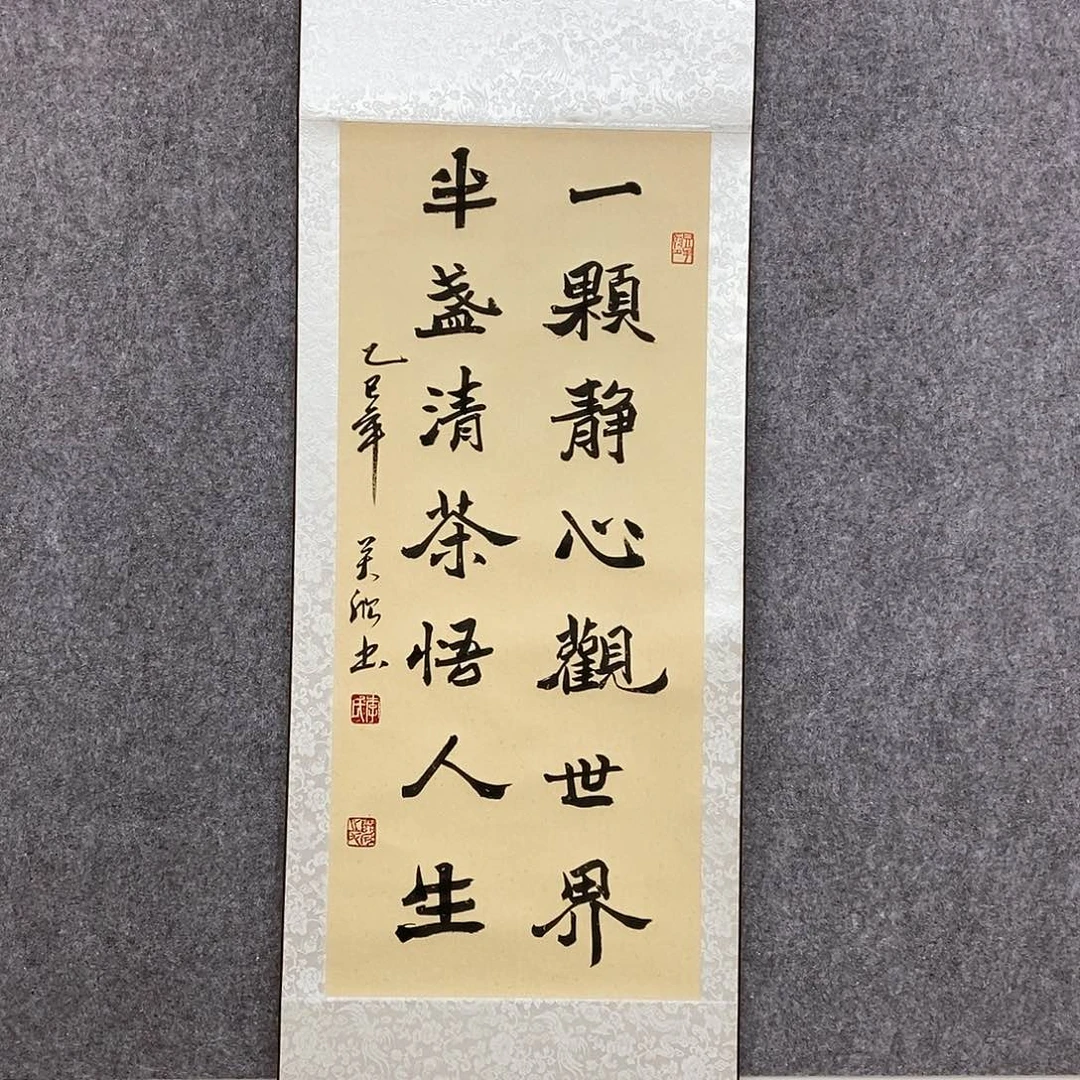 一顆静心觀世界
半盞清茶悟人生
乙巳年
书